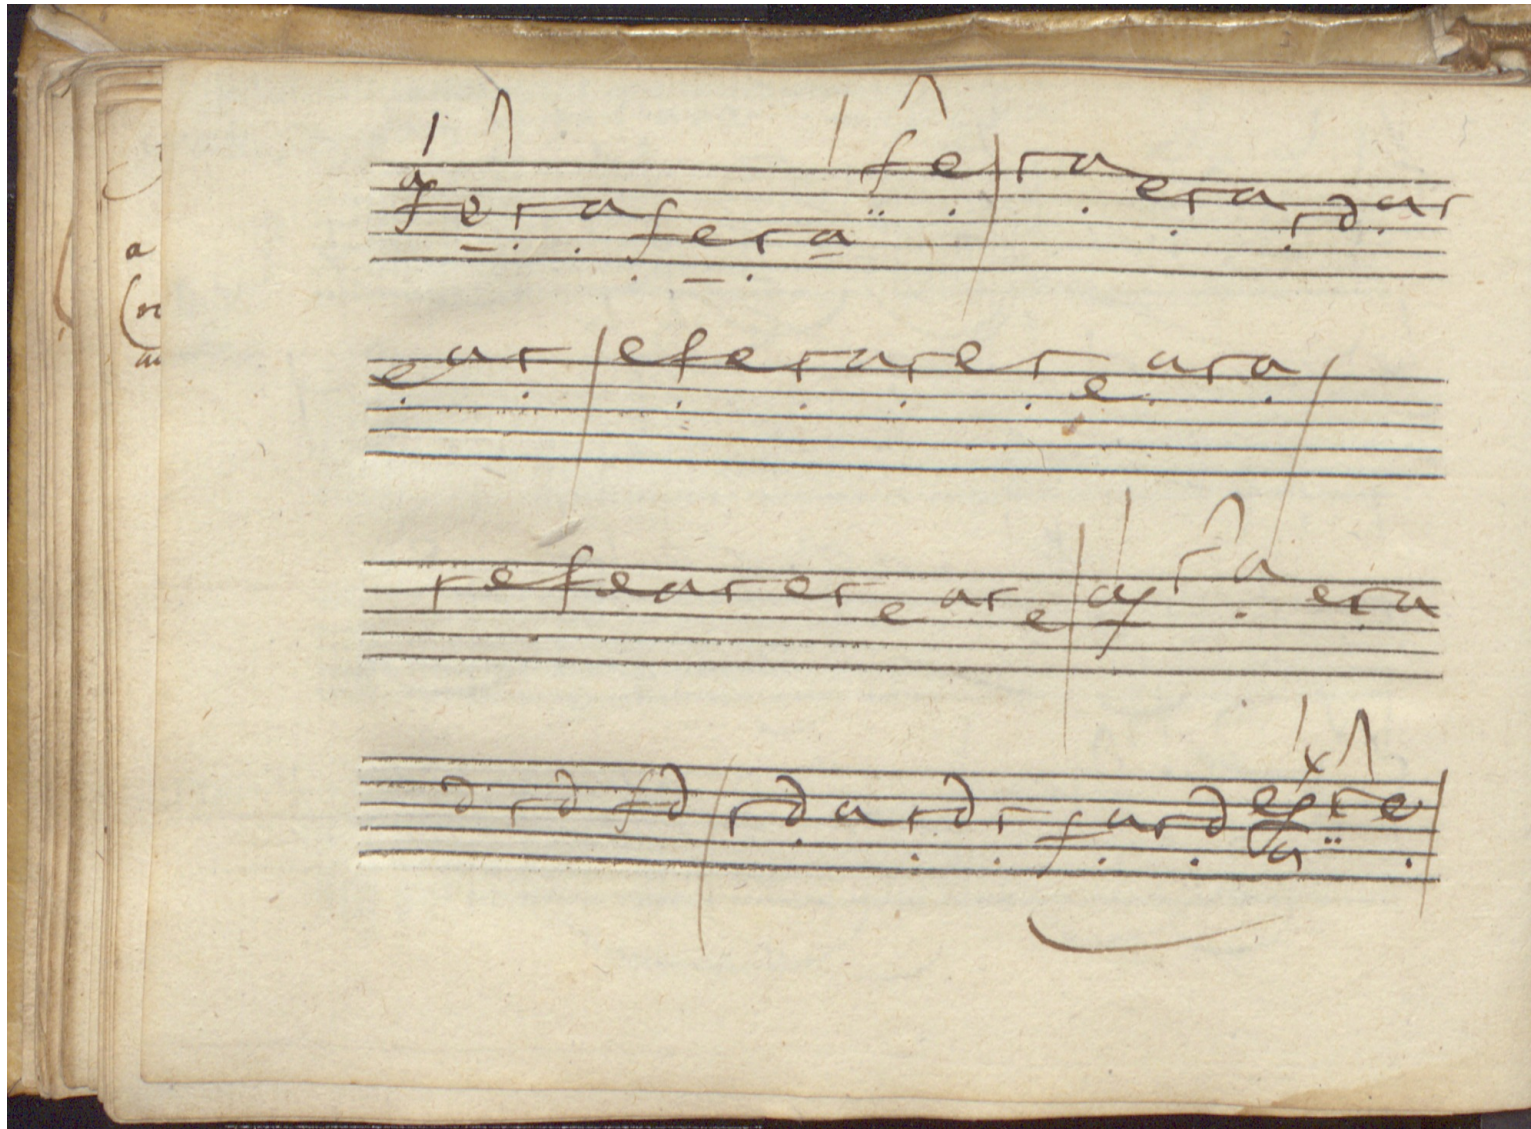 a
f e r a f e r a f e r a e r a r d a r
e a r e f e r a r e r e a r a
r e f e a r e r e a r e a r a e r a
d r d f d r d a r d r f a r d e f x r e a
a